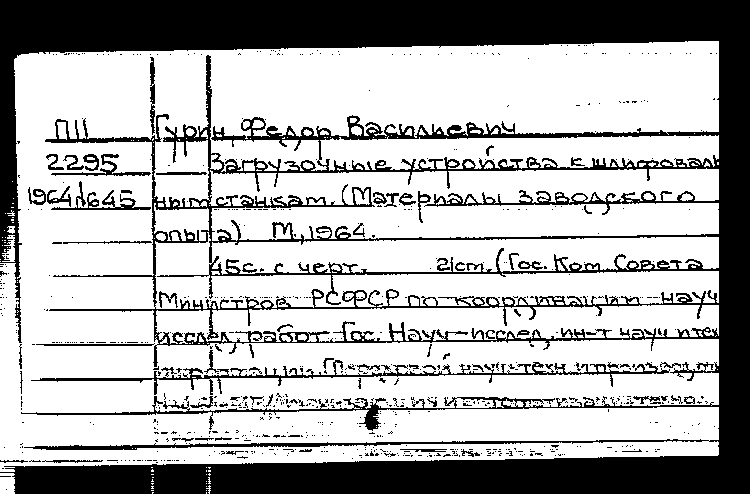 П11 Гурин, Федор Васильевич
2295 Загрузочные устройства к шлифоваль
1964/1645 ным станкам. (Материалы заводского
опыта) М., 1964.
45с. с черт. 21cm. (Гос. Ком. Совета
Министров РСФСР по координации науч
исслед. работ. Гос. Науч-исслед. ин-т науч и тех
информации. Передовой науч-техн и производ